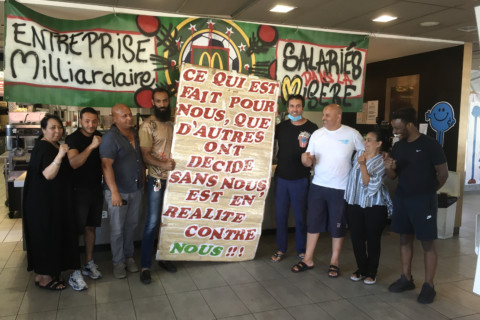 ENTREPRISE
Milliardaire
SALARIÉS
DANS LA
MISERE
CE QUI EST
FAIT POUR
NOUS, QUE
D'AUTRES
ONT
DECIDE
SANS NOUS
EST EN
REALITE
CONTRE
NOUS !!!